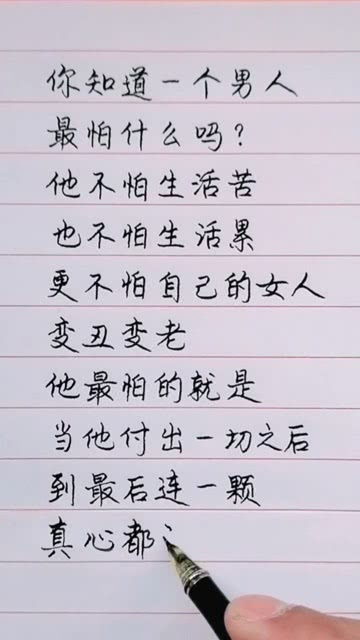 你知道一个男人
最怕什么吗?
他不怕生活苦
也不怕生活累
更不怕自己的女人
变丑变老
他最怕的就是
当他付出一切之后
到最后连一颗
真心都